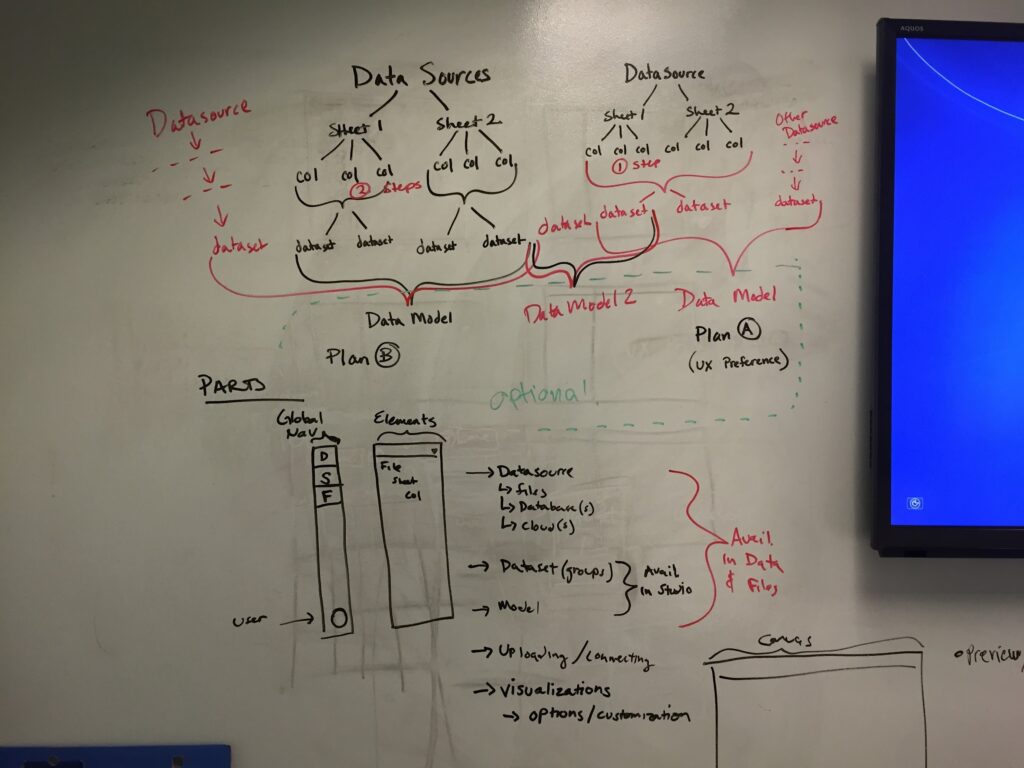 AQUOS
Data Sources
Sheet 1
Sheet 2
col col col
col col col
② Steps
dataset dataset
dataset dataset
Datasource
dataset
Data Model
Plan Ⓑ
Datasource
Sheet 1
Sheet 2
col col col col col col
① Step
dataset dataset dataset
Other
Datasource
dataset
Data Model 2
Data Model
Plan Ⓐ
(UX Preference)
optional
PARTS
Global
Nav
D
S
F
user
Elements
File
Sheet
Col
→ Datasource
↳ files
↳ Database(s)
↳ Cloud(s)
→ Dataset (groups)
→ Model
Avail.
in Studio
Avail.
in Data
& Files
→ Uploading / connecting
→ Visualizations
→ options/customization
Canvas
• Preview